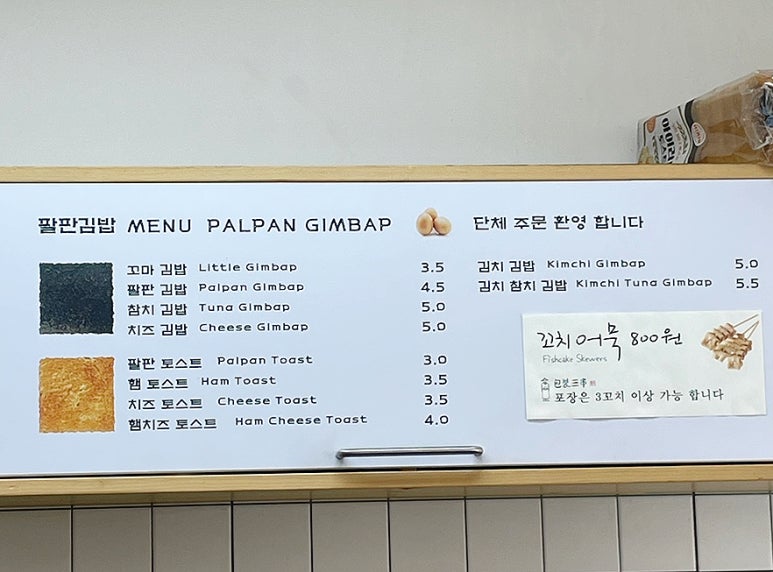 팔판김밥 MENU PALPAN GIMBAP
단체 주문 환영 합니다
꼬마 김밥 Little Gimbap 3.5
팔판 김밥 Palpan Gimbap 4.5
참치 김밥 Tuna Gimbap 5.0
치즈 김밥 Cheese Gimbap 5.0
팔판 토스트 Palpan Toast 3.0
햄 토스트 Ham Toast 3.5
치즈 토스트 Cheese Toast 3.5
햄치즈 토스트 Ham Cheese Toast 4.0
김치 김밥 Kimchi Gimbap 5.0
김치 참치 김밥 Kimchi Tuna Gimbap 5.5
꼬치어묵 800원
Fishcake Skewers
포장은 3꼬치 이상 가능 합니다